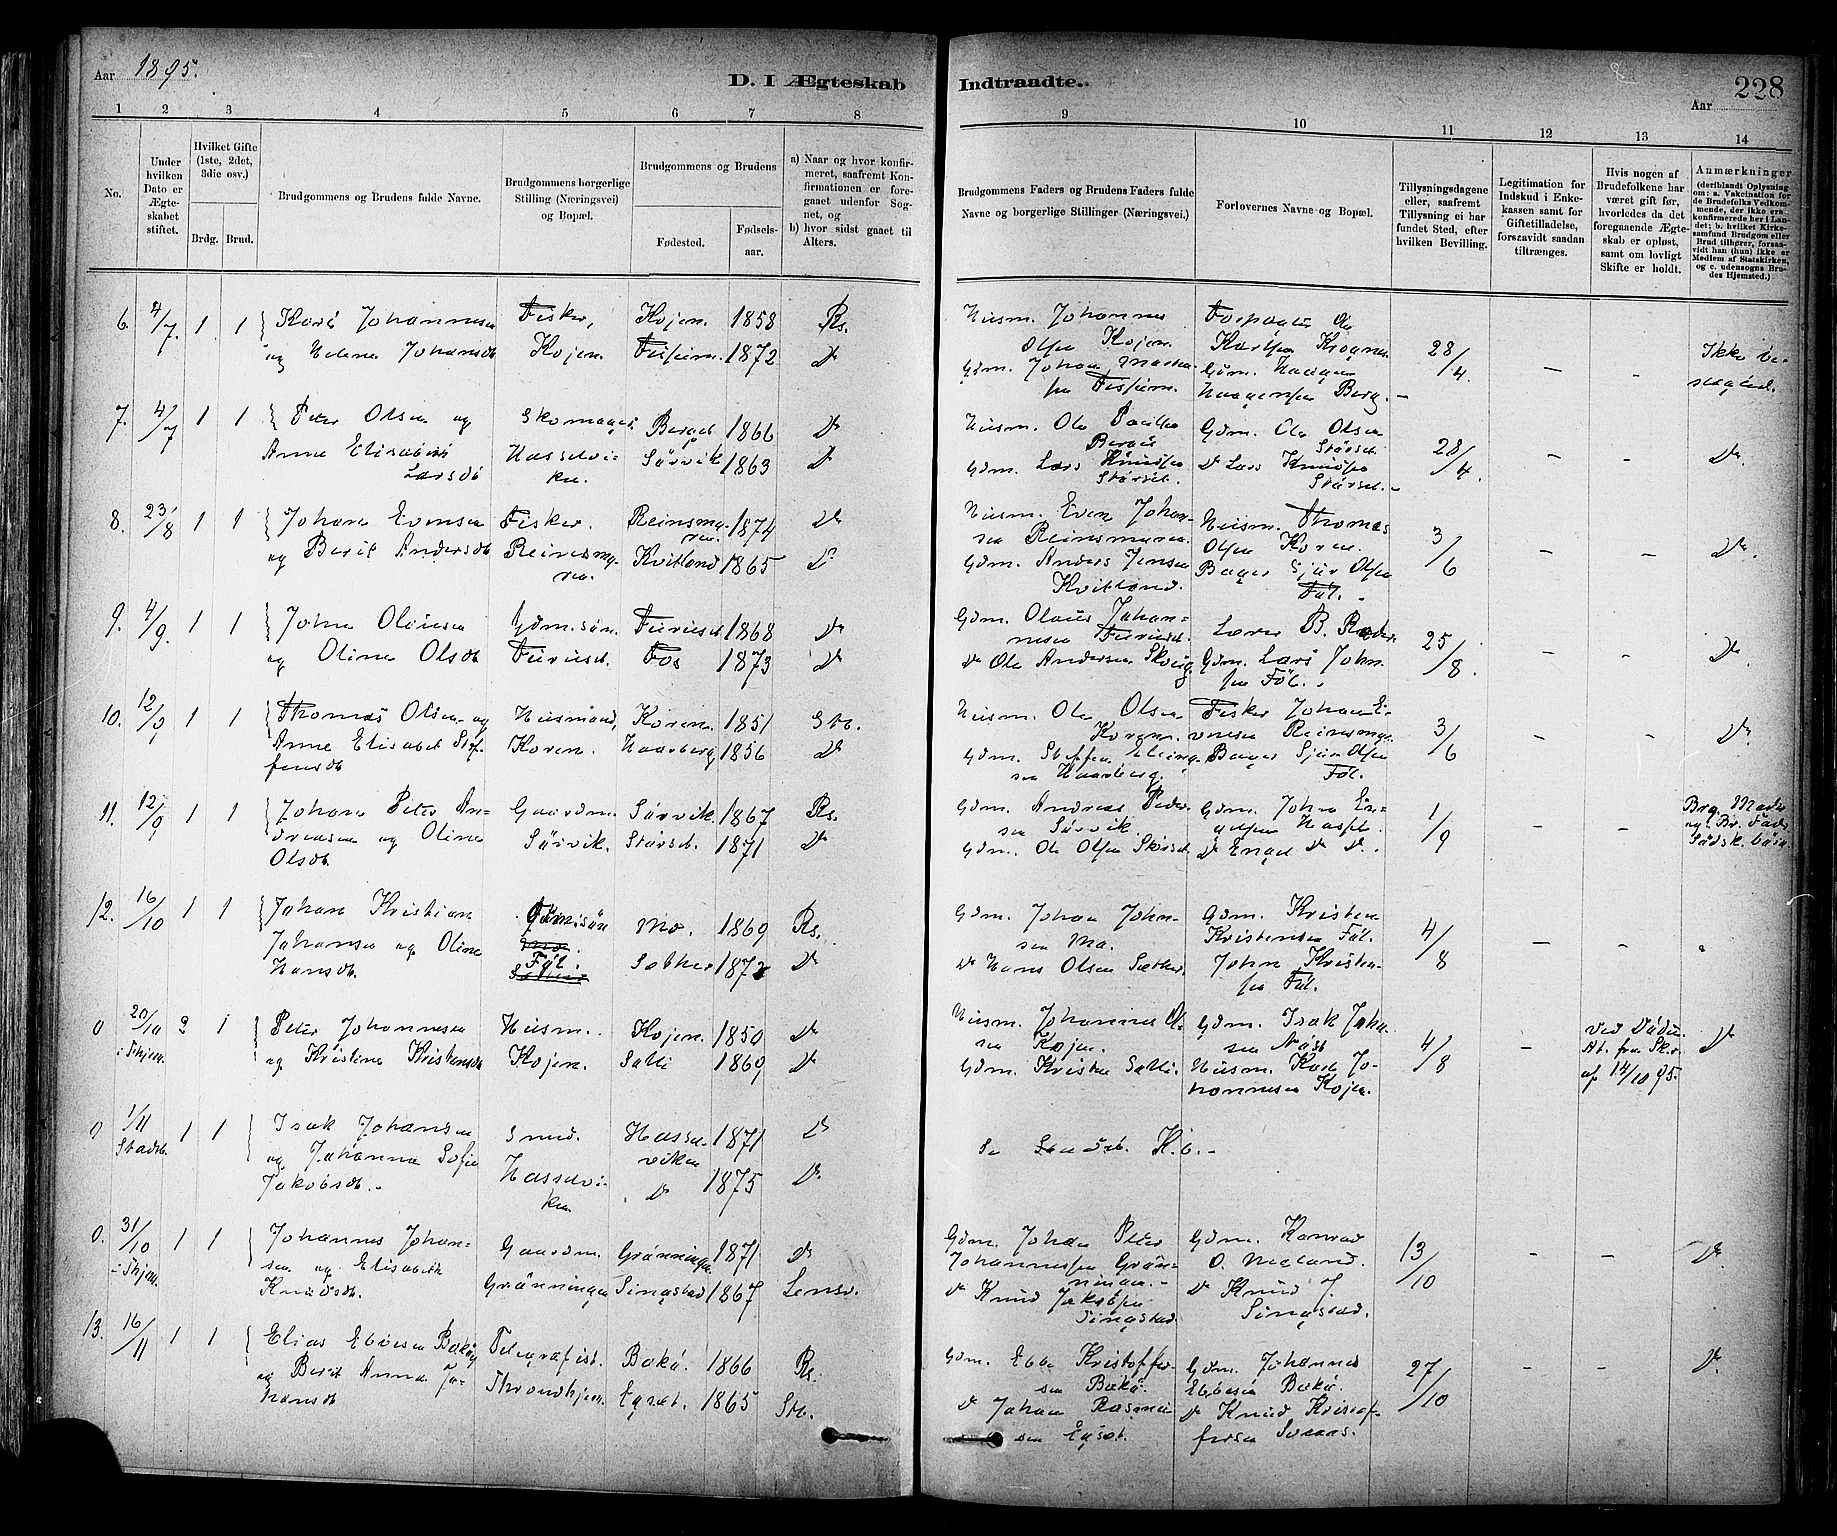 Aar 1895.
D. I Ægteskab Indtraadte.
Aar 228
1 2 3 4 5 6 7 8 9 10 11 12 13 14
No.
Under hvilken Dato er Ægteskabet stiftet.
Hvilket Gifte (1ste, 2det, 3die osv.)
Brdg. Brud.
Brudgommens og Brudens fulde Navne.
Brudgommens borgerlige Stilling (Næringsvei) og Bopæl.
Brudgommens og Brudens
Fødested.
Fødselsaar.
a) Naar og hvor konfirmeret, saafremt Konfirmationen er foregaaet udenfor Sognet, og
b) hvor sidst gaaet til Alters.
Brudgommens Faders og Brudens Faders fulde Navne og borgerlige Stillinger (Næringsvei.)
Forlovernes Navne og Bopæl.
Tillysningsdagene eller, saafremt Tillysning ei har fundet Sted, efter hvilken Bevilling.
Legitimation for Indskud i Enkekassen samt for Giftetilladelse, forsaavidt saadan tiltrænges.
Hvis nogen af Brudefolkene har været gift før, hvorledes da det foregaaende Ægteskab er opløst, samt om lovligt Skifte er holdt.
Anmærkninger
(deriblandt Oplysning om: a. Vakcination for de Brudefolks Vedkommende, der ikke era konfirmerede her i Landet; b. hvilket Kirkesamfund Brudgom eller Brud tilhører, forsaavidt han (hun) ikke er Medlem af Statskirken, og c. udensogns Brudes Hjemsted.)
6. 4/7. 1 1 Johannesen Fisker, Kojen. 1858 Rs. Husm. Johannes
og Helene Johansdt Kojen. 1872 Do Olsen Kojen. Gdm. Johan 28/4. - - Ikke be-
Gdm. Haagen Haagensen Berg. - slægted.
7. 4/7 1 1 Peter Olsen og Skomager Berget 1866 Do Husm. Ole Gdm. Ole Olsen
Anne Elisabeth Larsdt Hasselviken. Sørvik 1863 Do Gdm. Lars Knudsen Størset. Do Lars Knudsen Størset. - 28/4. - - Do.
8. 23/8 1 1 Johan Evensen Fisker. Reinsmyren. 1874 Do Husm. Even Johansen Reinsmyren. Husm. Thomas Olsen Koren. 3/6 - - Do.
og Berit Andersdt Reinsmyren. Kvitland 1865 Do Gdm. Anders Jensen Kvitland. Bager Sjur Olsen Føl.
9. 4/9. 1 1 John Olausen Gdm.søn. Furuset 1868 Do Gdm. Olaus Johannesen Furuset. Lærer B.
og Oline Olsdt Furuset. Fos 1873 Do Do Ole Andersen Gdm. Lars Johnsen Føl. 25/8. - - Do
10. 12/9 1 1 Thomas Olsen og Husmand, Koren. 1851 Stb. Husm. Ole Olsen Koren. Fisker Johan Evensen Reinsmyren
Anne Elisabet Steffensdt Koren. Haarberg 1856 Do Gdm. Steffen Haarberg. Bager Sjur Olsen Føl. 3/6 - - Do.
11. 12/9 1 1 Johan Peter Andreasen og Oline Olsdt Gaardm. Sørvik. Sørvik. 1867 Rs. Gdm. Andreas Pedersen Sørvik. Gdm. Johan
Størset. 1871 Do Gdm. Ole Olsen Størset. Do Do Do. 1/9 - - Brg. Moder og Br. Fader Sødsk.børn.
12. 16/10 1 1 Johan Kristian Johansen og Oline Hansdt Gdm.søn Føl. Mo. 1869 Rs. Gdm. Johan Johnsen Mo. Gdm. Kristen Kristensen Føl. 4/8 - -
Sæther 1872 Do Do Hans Olsen Sæther. John Kristensen Føl.
0 20/10 i Thjem. 2 1 Peter Johannesen Husm. Kojen. 1850 Do Husm. Johannes Olsen Kojen. Gdm. Isak Johansen
og Kristine Kristensdt Kojen. 1869 Do Gdm. Kristen Husm. Johannesen Kojen. 4/8 - Ved Døden. At. fra Skr. af 14/10 95. Do
0 1/11 Stadsb. 1 1 Isak Johansen Smed. Hasselviken 1871 Do
og Johanna Sofie Jakobsdt. Hasselviken. Do 1875 Do Se K.b. -
0. 31/10 i Thjem. 1 1 Johannes Johansen og Elisabeth Knudsdt. Gaardm. Grønningen 1871 Do Gdm. Johan Peter Johannesen Grønningen. - Gdm. Konrad O. Meland. 13/10 - - Do.
Grønningen Singstad 1867 Lensv. Do Knud Jakobsen Singstad Do Knud J. Singstad.
13. 16/11 1 1 Elias Ebbesen Bekø Telegrafist. Bekø. 1866 Rs. Gdm. Ebbe Kristoffersen Bekø. Gdm. Johannes Ebbesen Bekø. 27/10 - - Do.
og Berit Anna Johansdt Throndhjem. Egset. 1865 Stb. Do Johan Rasmussen Egset. Do Knud Kristoffersen